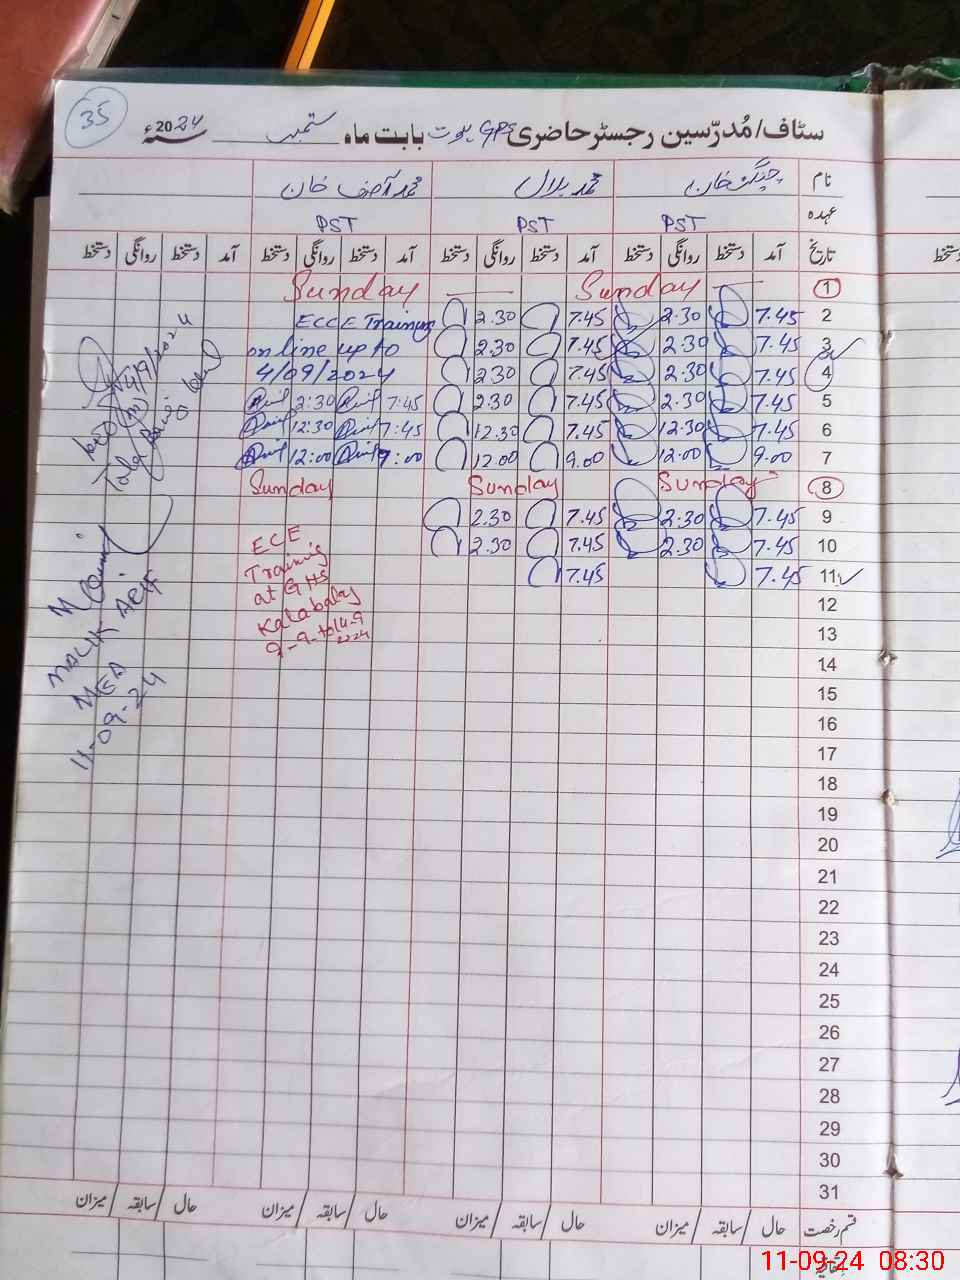 35
سٹاف/مُدرّسین رجسٹر حاضری GPS بابت ماہ ستمبر سنہ 2024ء
نام چنگیز خان محمد بلال محمد آصف خان
عہدہ PST PST PST
تاریخ آمد دستخط روانگی دستخط آمد دستخط روانگی دستخط آمد دستخط روانگی دستخط آمد دستخط روانگی دستخط
1 Sunday Sunday
2 7.45 2.30 7.45 2.30 ECCE Training
3 7.45 2.30 7.45 2.30 online up to
4 7.45 2.30 7.45 2.30 4/09/2024
5 7.45 2.30 7.45 2.30 7:45 2:30
6 7.45 12.30 7.45 12.30 7:45 12:30
7 9.00 12.00 9.00 12.00 9:00 12:00
8 Sunday Sunday Sunday
9 7.45 2.30 7.45 2.30
10 7.45 2.30 7.45 2.30
11 7.45 7.45
ECE
Training
at GHS
Kalabagh
9-9-to14-9
2024
12
13
14
15
16
17
18
19
20
21
22
23
24
25
26
27
28
29
30
31
4/9/2024
MALIK ARIF
MEA
11-09-24
قسم رخصت حال سابقہ میزان حال سابقہ میزان حال سابقہ میزان حال سابقہ میزان
11-09-24 08:30